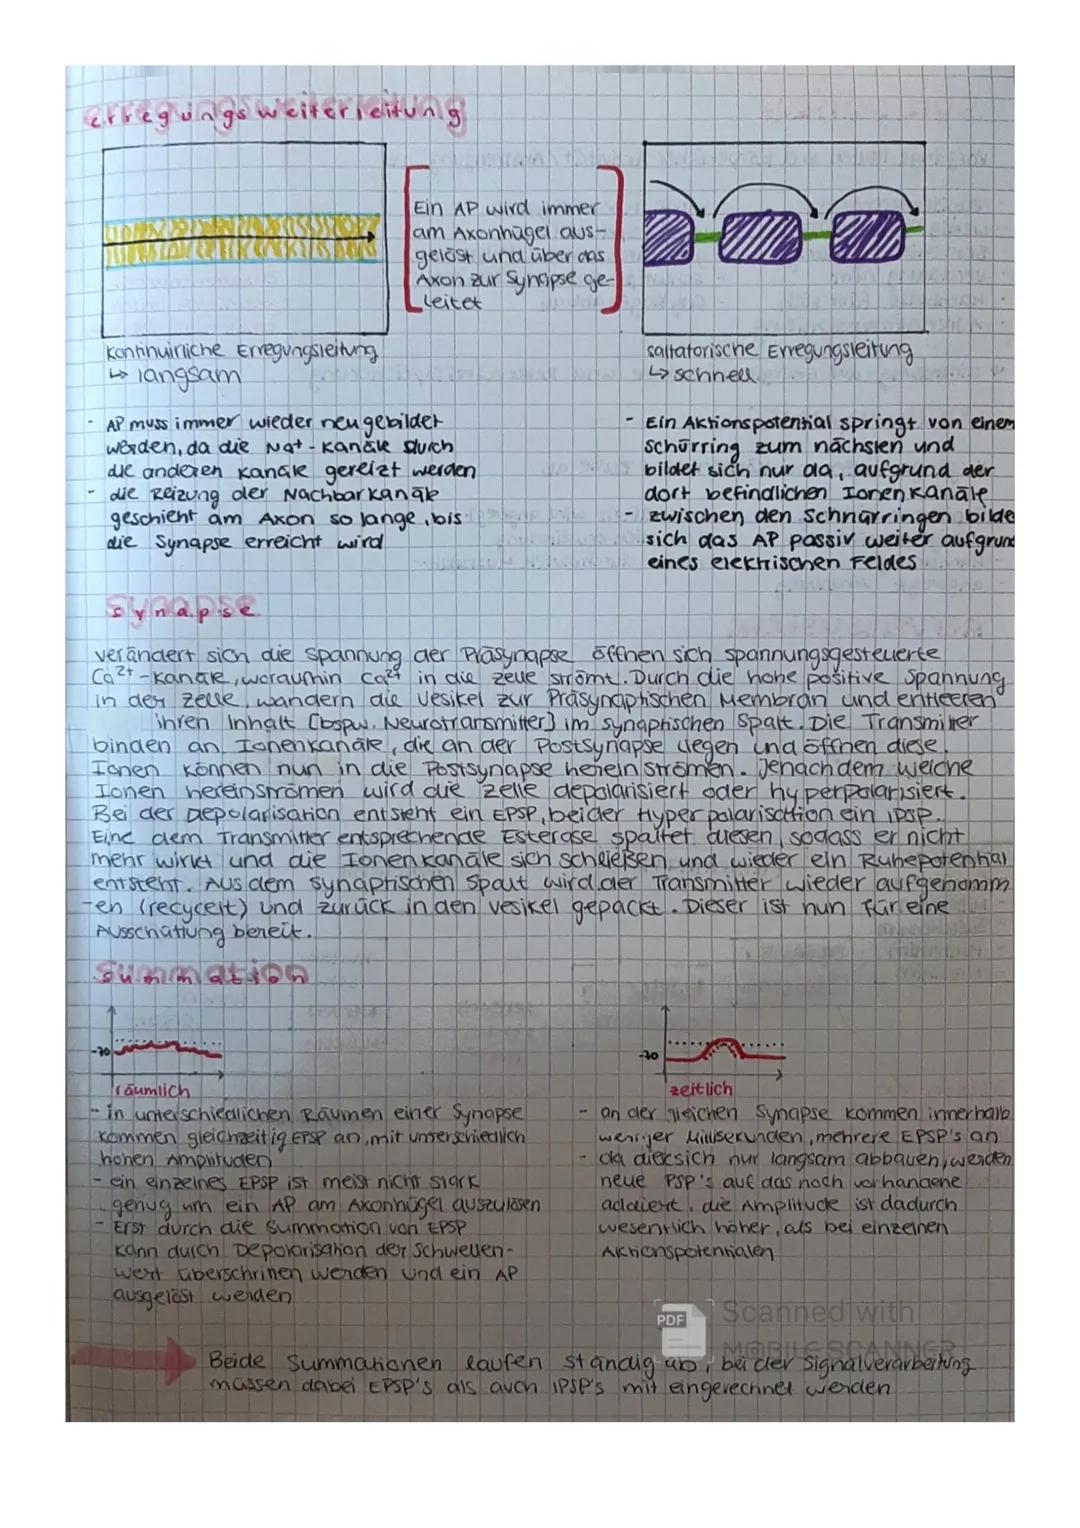 erregungsweiterleitung
Ein AP wird immer
am Axonhügel aus-
gelöst und über das
Axon zur Synapse ge-
leitet
kontinuirliche Erregungsleitung
↳ langsam
- AP muss immer wieder neu gebildet
werden, da die Na+-Kanäle durch
die anderen Kanäle gereizt werden
- die Reizung der Nachbarkanäle
geschieht am Axon so lange, bis
die Synapse erreicht wird
saltatorische Erregungsleitung
↳ schnell
- Ein Aktionspotential springt von einem
Schürring zum nächsten und
bildet sich nur da, aufgrund der
dort befindlichen Ionenkanäle
- zwischen den Schnürringen bilde
sich das AP passiv weiter aufgrund
eines elektrischen Feldes
synapse
verändert sich die Spannung der Präsynapse öffnen sich spannungsgesteuerte
Ca²⁺-Kanäle, woraufhin Ca²⁺ in die Zelle strömt. Durch die hohe positive Spannung
in der Zelle, wandern die Vesikel zur Präsynaptischen Membran und entleeren
ihren Inhalt [bspw. Neurotransmitter] im synaptischen Spalt. Die Transmitter
binden an Ionenkanäle, die an der Postsynapse liegen und öffnen diese.
Ionen können nun in die Postsynapse hereinströmen. Jenachdem welche
Ionen hereinströmen wird die Zelle depolarisiert oder hyperpolarisiert.
Bei der Depolarisation entsteht ein EPSP, bei der Hyperpolarisation ein IPSP.
Eine dem Transmitter entsprechende Esterase spaltet diesen, sodass er nicht
mehr wirkt und die Ionenkanäle sich schließen und wieder ein Ruhepotential
entsteht. Aus dem synaptischen Spalt wird der Transmitter wieder aufgenomm
-en (recycelt) und zurück in den Vesikel gepackt. Dieser ist nun für eine
Ausschüttung bereit.
summation
-70
räumlich
- in unterschiedlichen Räumen einer Synapse
kommen gleichzeitig EPSP an, mit unterschiedlich
hohen Amplituden
- ein einzelnes EPSP ist meist nicht stark
genug um ein AP am Axonhügel auszulösen
- Erst durch die Summation von EPSP
kann durch Depolarisation der Schwellen-
wert überschritten werden und ein AP
ausgelöst werden
-70
zeitlich
- an der gleichen Synapse kommen innerhalb
weniger Millisekunden, mehrere EPSP's an
- da diese sich nur langsam abbauen, werden
neue PSP's auf das noch vorhandene
addiert, die Amplitude ist dadurch
wesentlich höher, als bei einzelnen
Aktionspotentialen
PDF
Scanned with
MOBILE SCANNER
Beide Summationen laufen ständig ab, bei der Signalverarbeitung
müssen dabei EPSP's als auch IPSP's mit eingerechnet werden